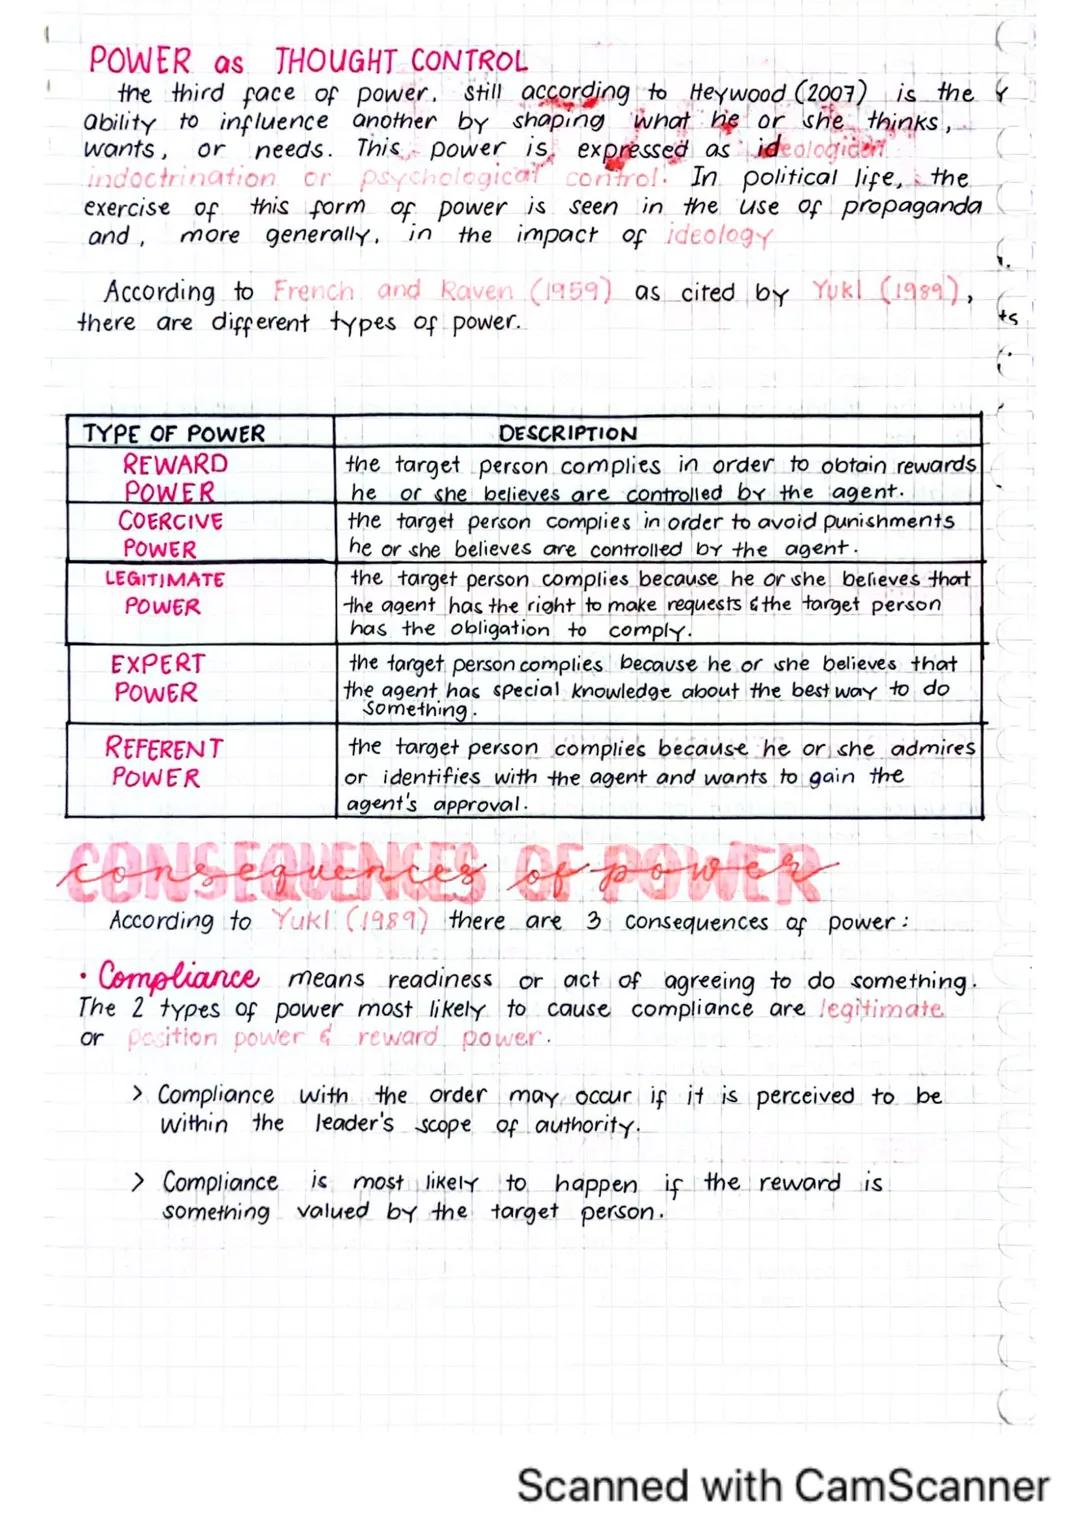 POWER as THOUGHT CONTROL
the third face of power, still according to Heywood (2007) is the
ability to influence another by shaping what he or she thinks,
wants, or needs. This power is expressed as ideological
indoctrination or psychological control. In political life, the
exercise of this form of power is seen in the use of propaganda
and, more generally, in the impact of ideology
According to French and Raven (1959) as cited by Yukl (1989),
there are different types of power.
ts
TYPE OF POWER DESCRIPTION
REWARD POWER
the target person complies in order to obtain rewards
he or she believes are controlled by the agent.
COERCIVE POWER
the target person complies in order to avoid punishments
he or she believes are controlled by the agent.
LEGITIMATE POWER
the target person complies because he or she believes that
the agent has the right to make requests & the target person
has the obligation to comply.
EXPERT POWER
the target person complies because he or she believes that
the agent has special knowledge about the best way to do
something.
REFERENT POWER
the target person complies because he or she admires
or identifies with the agent and wants to gain the
agent's approval.
CONSEQUENCES OF POWER
consequences of power
According to Yukl (1989) there are 3 consequences of power:
• Compliance means readiness or act of agreeing to do something.
The 2 types of power most likely to cause compliance are legitimate
or position power & reward power.
> Compliance with the order may occur if it is perceived to be
within the leader's scope of authority.
> Compliance is most likely to happen if the reward is
something valued by the target person.
Scanned with CamScanner